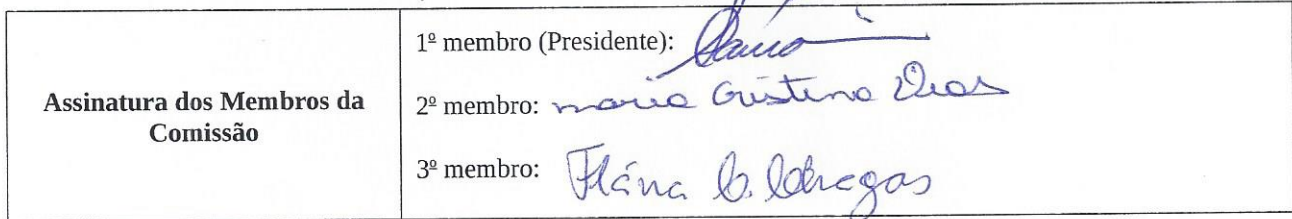 Assinatura dos Membros da
Comissão
1º membro (Presidente):
2º membro: maria Cristina Dias
3º membro: Flávia C. Chagas